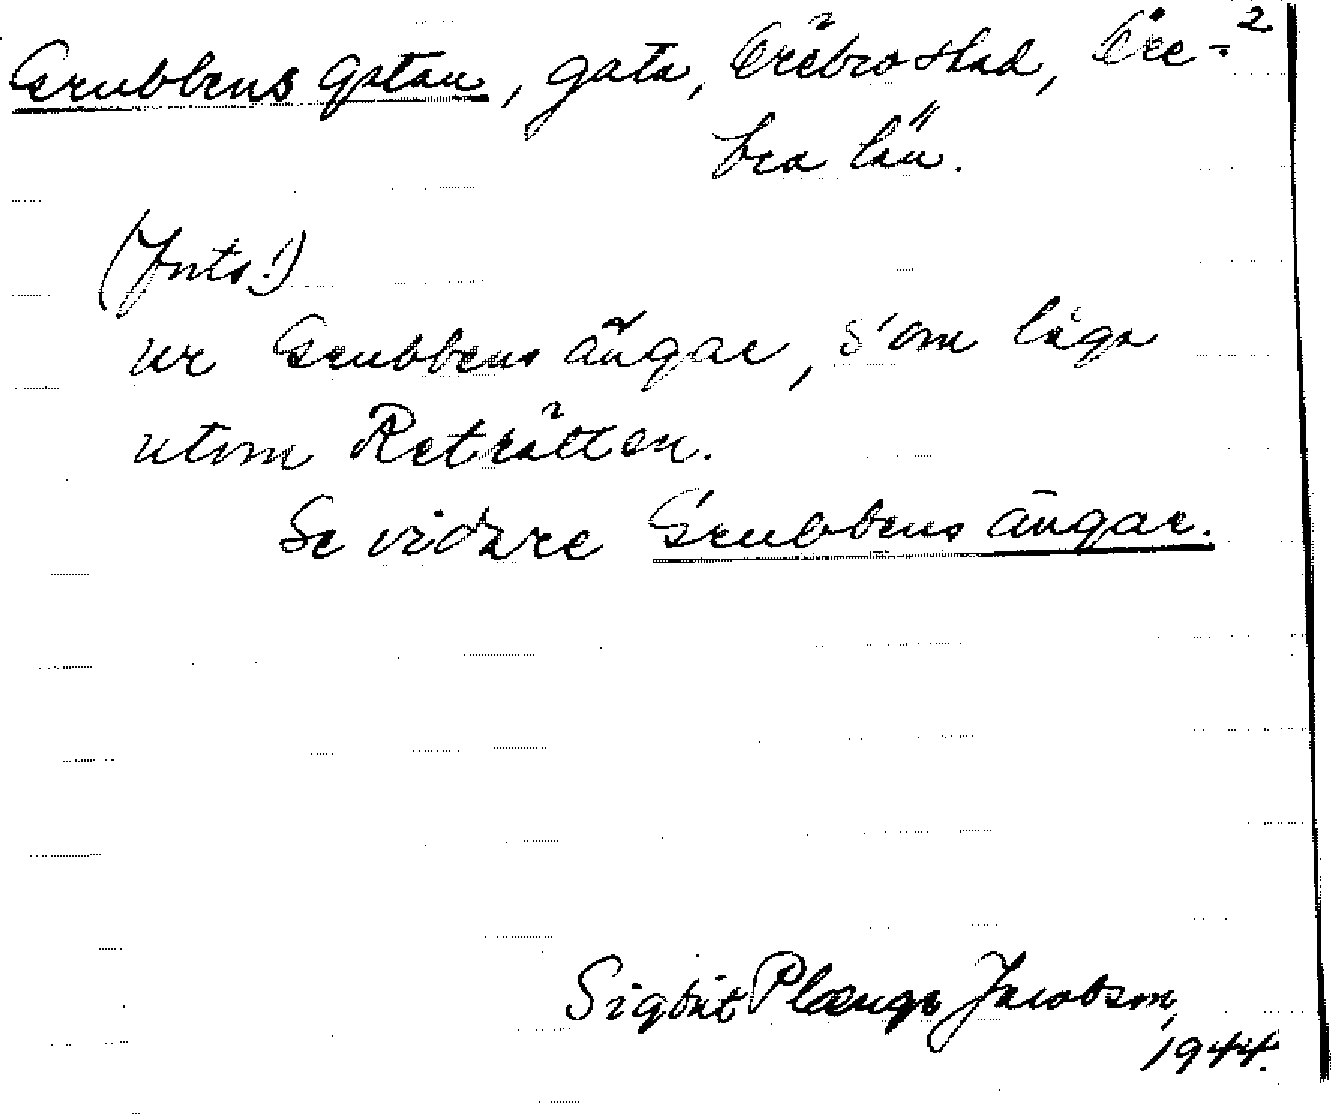 Grubbens gatan, gata, Örebro stad, Öre- 2
bro län.
(Jnts!)
ur Grubbens ängar, som låga
utom Reträtten.
Se vidare Grubbens ängar.
Sigbrit Plænge Jacobson,
1944.